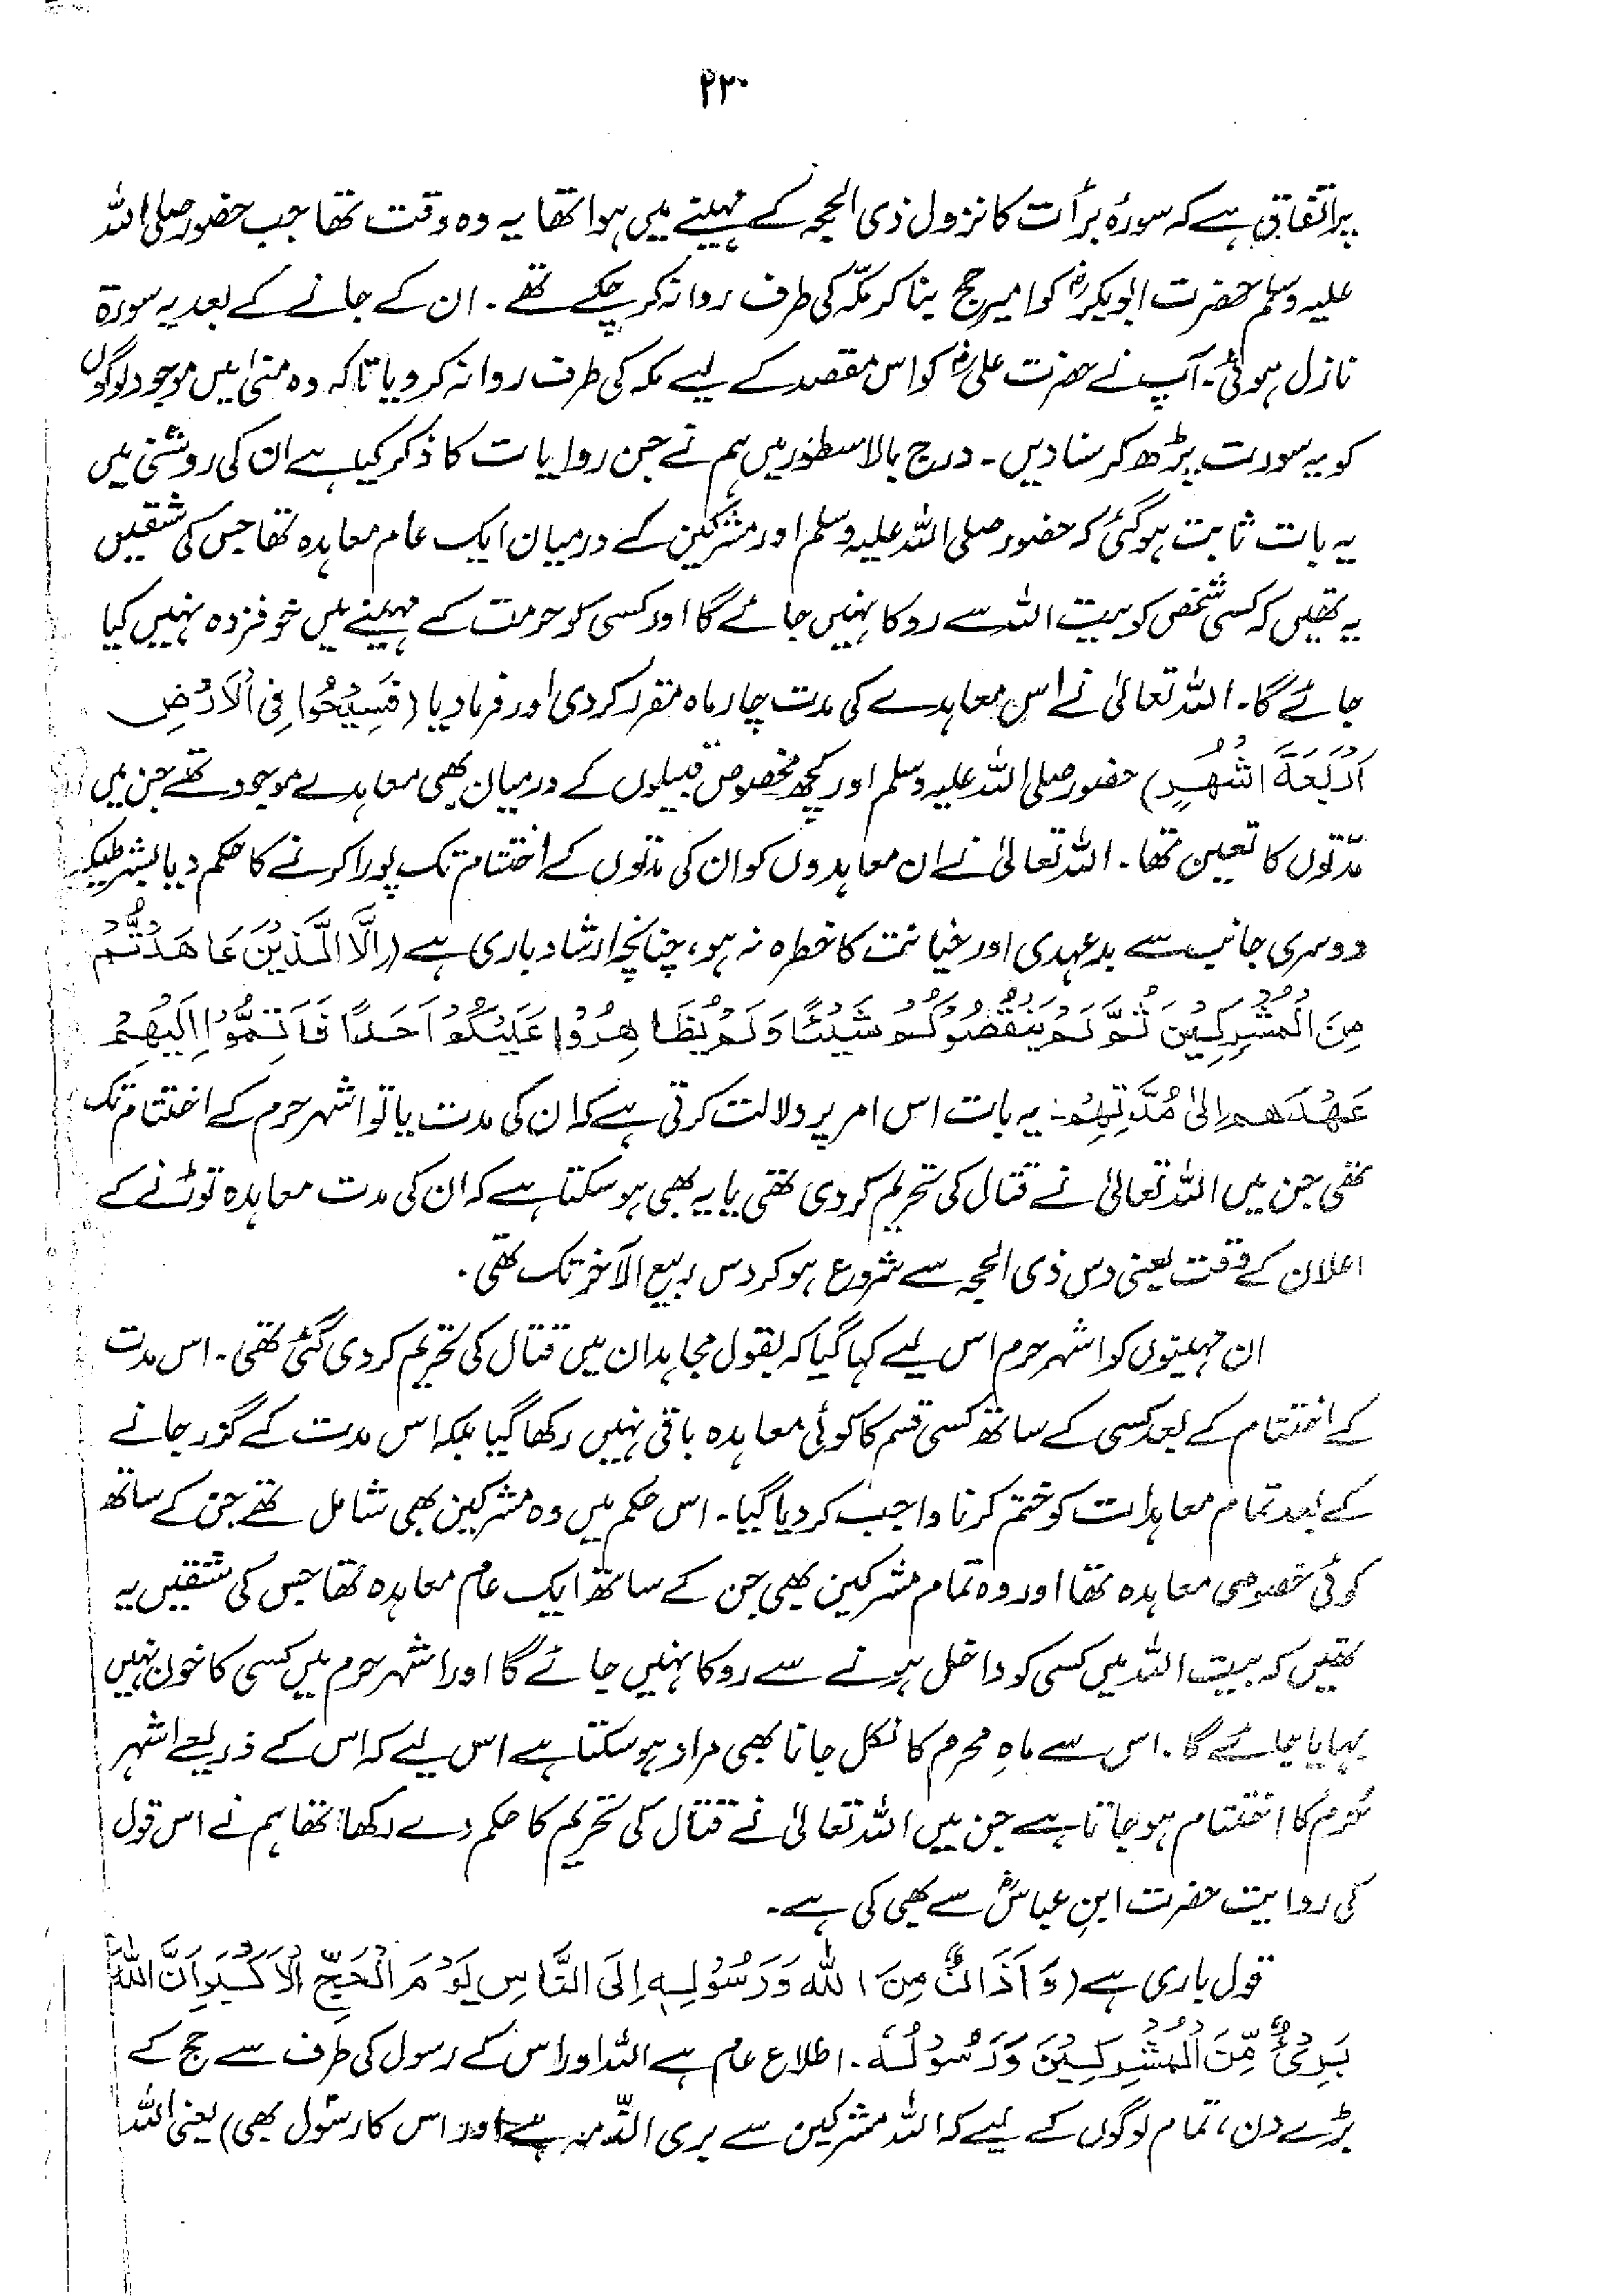 ۲۲۰
پر اتفاق ہے کہ سورۂ برأت کا نزول ذی الحجہ کے مہینے میں ہوا تھا یہ وہ وقت تھا جب حضور صلی اللہ
علیہ وسلم حضرت ابوبکرؓ کو امیر حج بنا کر مکّہ کی طرف روانہ کر چکے تھے۔ ان کے جانے کے بعد یہ سورۃ
نازل ہوئی۔ آپ نے حضرت علیؓ کو اس مقصد کے لیے مکہ کی طرف روانہ کر دیا تاکہ وہ منیٰ میں موجود لوگوں
کو یہ سورت پڑھ کر سنا دیں۔ درج بالا سطور میں ہم نے جن روایات کا ذکر کیا ہے ان کی روشنی میں
یہ بات ثابت ہو گئی کہ حضور صلی اللہ علیہ وسلم اور مشرکین کے درمیان ایک عام معاہدہ تھا جس کی شقیں
یہ تھیں کہ کسی شخص کو بیت اللہ سے روکا نہیں جائے گا اور کسی کو حرمت کے مہینے میں خوفزدہ نہیں کیا
جائے گا۔ اللہ تعالیٰ نے اس معاہدے کی مدت چار ماہ مقرر کر دی اور فرما دیا (فَسِیْحُوْا فِی الْاَرْضِ
اَرْبَعَۃَ اَشْھُرٍ) حضور صلی اللہ علیہ وسلم اور کچھ مخصوص قبیلوں کے درمیان بھی معاہدے موجود تھے جن میں
مدّتوں کا تعین تھا۔ اللہ تعالیٰ نے ان معاہدوں کو ان کی مدتوں کے اختتام تک پورا کرنے کا حکم دیا بشرطیکہ
دوسری جانب سے بدعہدی اور خیانت کا خطرہ نہ ہو، چنانچہ ارشاد باری ہے (اِلَّا الَّذِیْنَ عَاھَدْتُّمْ
مِنَ الْمُشْرِکِیْنَ ثُمَّ لَمْ یَنْقُصُوْکُمْ شَیْئًا وَلَمْ یُظَاھِرُوْا عَلَیْکُمْ اَحَدًا فَاَتِمُّوْا اِلَیْھِمْ
عَھْدَھُمْ اِلیٰ مُدَّتِھِمْ۔ یہ بات اس امر پر دلالت کرتی ہے کہ ان کی مدت یا تو اشہر حرم کے اختتام تک
تھی جن میں اللہ تعالیٰ نے قتال کی تحریم کر دی تھی یا یہ بھی ہو سکتا ہے کہ ان کی مدت معاہدہ توڑنے کے
اعلان کے وقت یعنی دس ذی الحجہ سے شروع ہو کر دس ربیع الآخر تک تھی۔
ان مہینوں کو اشہر حرم اس لیے کہا گیا کہ بقول مجاہد ان میں قتال کی تحریم کر دی گئی تھی۔ اس مدت
کے اختتام کے بعد کسی کے ساتھ کسی قسم کا کوئی معاہدہ باقی نہیں رکھا گیا بلکہ اس مدت کے گزر جانے
کے بعد تمام معاہدات کو ختم کرنا واجب کر دیا گیا۔ اس حکم میں وہ مشرکین بھی شامل تھے جن کے ساتھ
کوئی خصوصی معاہدہ تھا اور وہ تمام مشرکین بھی جن کے ساتھ ایک عام معاہدہ تھا جس کی شقیں یہ
تھیں کہ بیت اللہ میں کسی کو داخل ہونے سے روکا نہیں جائے گا اور اشہر حرم میں کسی کا خون نہیں
بہایا جائے گا۔ اس سے ماہِ محرم کا نکل جانا بھی مراد ہو سکتا ہے اس لیے کہ اس کے ذریعے اشہر
حُرم کا اختتام ہو جاتا ہے جن میں اللہ تعالیٰ نے قتال کی تحریم کا حکم دے رکھا تھا ہم نے اس قول
کی روایت حضرت ابنِ عباسؓ سے بھی کی ہے۔
قول باری ہے (وَاَذَانٌ مِنَ اللہِ وَرَسُوْلِہٖ اِلَی النَّاسِ یَوْمَ الْحَجِّ الْاَکْبَرِ اَنَّ اللہَ
بَرِیْءٌ مِّنَ الْمُشْرِکِیْنَ وَرَسُوْلُہٗ۔ اطلاع عام ہے اللہ اور اس کے رسول کی طرف سے حج کے
بڑے دن، تمام لوگوں کے لیے کہ اللہ مشرکین سے بری الذّمہ ہے اور اس کا رسول بھی) یعنی اللہ